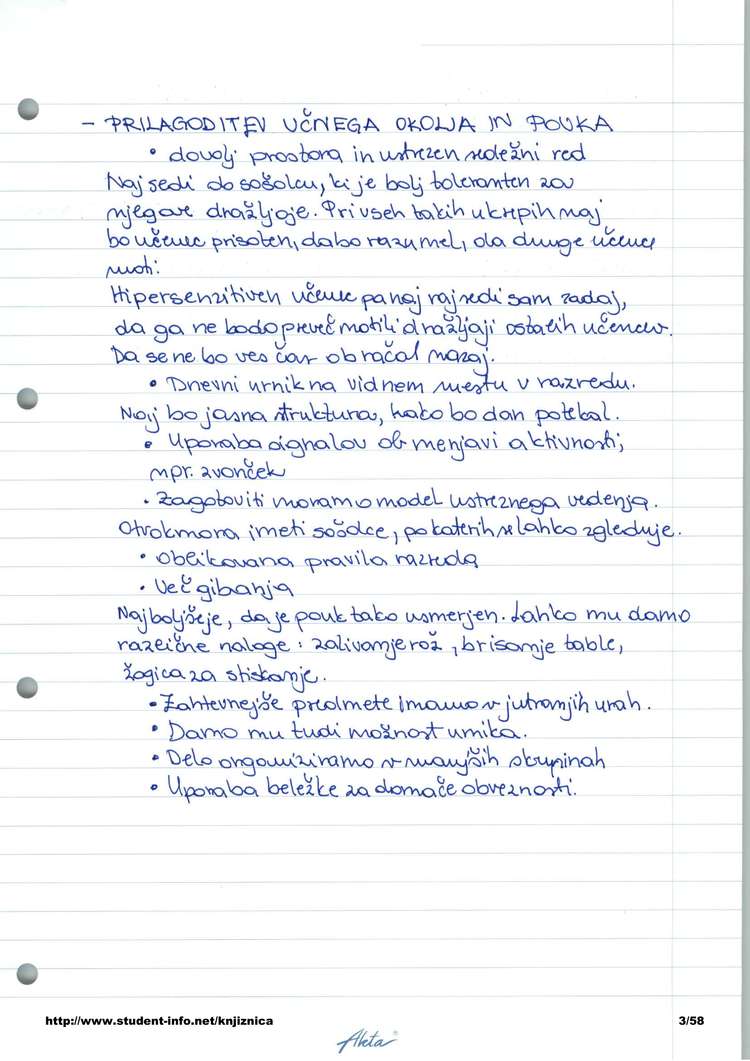 - PRILAGODITEV UČNEGA OKOLJA IN POUKA
• dovolj prostora in ustrezen sedežni red
Naj sedi ob sošolcu, ki je bolj toleranten za
njegove dražljaje. Pri vseh takih ukrepih naj
bo učenec prisoten, da bo razumel, da druge učence
moti.
Hipersenzitiven učenec pa naj raj sedi sam zadaj,
da ga ne bodo preveč motili dražljaji ostalih učencev.
Da se ne bo ves čas obračal nazaj.
• Dnevni urnik na vidnem mestu v razredu.
Naj bo jasna struktura, kako bo dan potekal.
• Uporaba signalov ob menjavi aktivnosti,
npr. zvonček
• Zagotoviti moramo model ustreznega vedenja.
Otrok mora imeti sošolce, po katerih se lahko zgleduje.
• oblikovana pravila razreda
• Več gibanja
Najboljše je, da je pouk tako usmerjen. Lahko mu damo
različne naloge: zalivanje rož, brisanje table,
žogica za stiskanje.
• Zahtevnejše predmete imamo v jutranjih urah.
• Damo mu tudi možnost umika.
• Delo organiziramo v manjših skupinah
• Uporaba beležke za domače obveznosti.
http://www.student-info.net/knjiznica 3/58
Akta